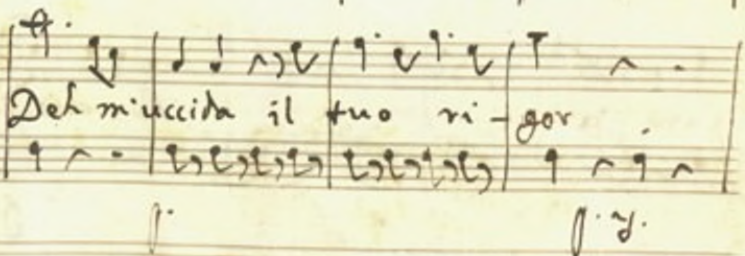 Deh m'uccida il tuo ri-gor
p. p. y.